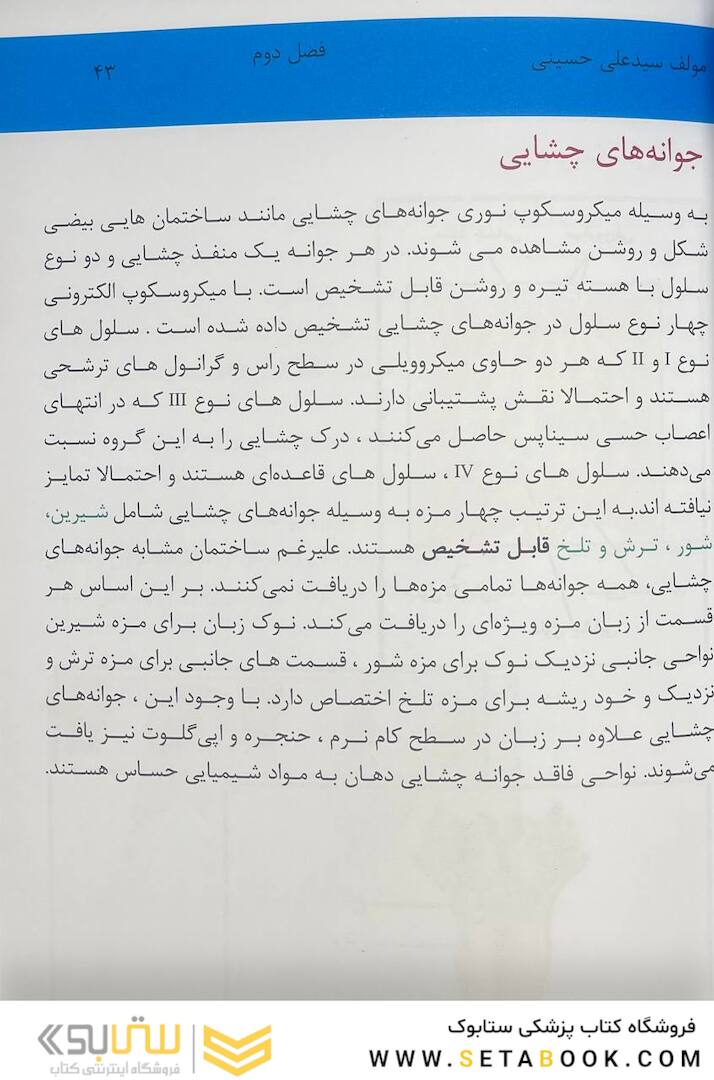 مولف سیدعلی حسینی
فصل دوم
۴۳
جوانه‌های چشایی
به وسیله میکروسکوپ نوری جوانه‌های چشایی مانند ساختمان هایی بیضی
شکل و روشن مشاهده می شوند. در هر جوانه یک منفذ چشایی و دو نوع
سلول با هسته تیره و روشن قابل تشخیص است. با میکروسکوپ الکترونی
چهار نوع سلول در جوانه‌های چشایی تشخیص داده شده است . سلول های
نوع I و II که هر دو حاوی میکروویلی در سطح راس و گرانول های ترشحی
هستند و احتمالا نقش پشتیبانی دارند. سلول های نوع III که در انتهای
اعصاب حسی سیناپس حاصل می‌کنند ، درک چشایی را به این گروه نسبت
می‌دهند. سلول های نوع IV ، سلول های قاعده‌ای هستند و احتمالا تمایز
نیافته اند.به این ترتیب چهار مزه به وسیله جوانه‌های چشایی شامل شیرین،
شور ، ترش و تلخ قابل تشخیص هستند. علیرغم ساختمان مشابه جوانه‌های
چشایی، همه جوانه‌ها تمامی مزه‌ها را دریافت نمی‌کنند. بر این اساس هر
قسمت از زبان مزه ویژه‌ای را دریافت می‌کند. نوک زبان برای مزه شیرین
نواحی جانبی نزدیک نوک برای مزه شور ، قسمت های جانبی برای مزه ترش و
نزدیک و خود ریشه برای مزه تلخ اختصاص دارد. با وجود این ، جوانه‌های
چشایی علاوه بر زبان در سطح کام نرم ، حنجره و اپی‌گلوت نیز یافت
می‌شوند. نواحی فاقد جوانه چشایی دهان به مواد شیمیایی حساس هستند.
فروشگاه کتاب پزشکی ستابوک
WWW.SETABOOK.COM
ستابوک
فروشگاه اینترنتی کتاب